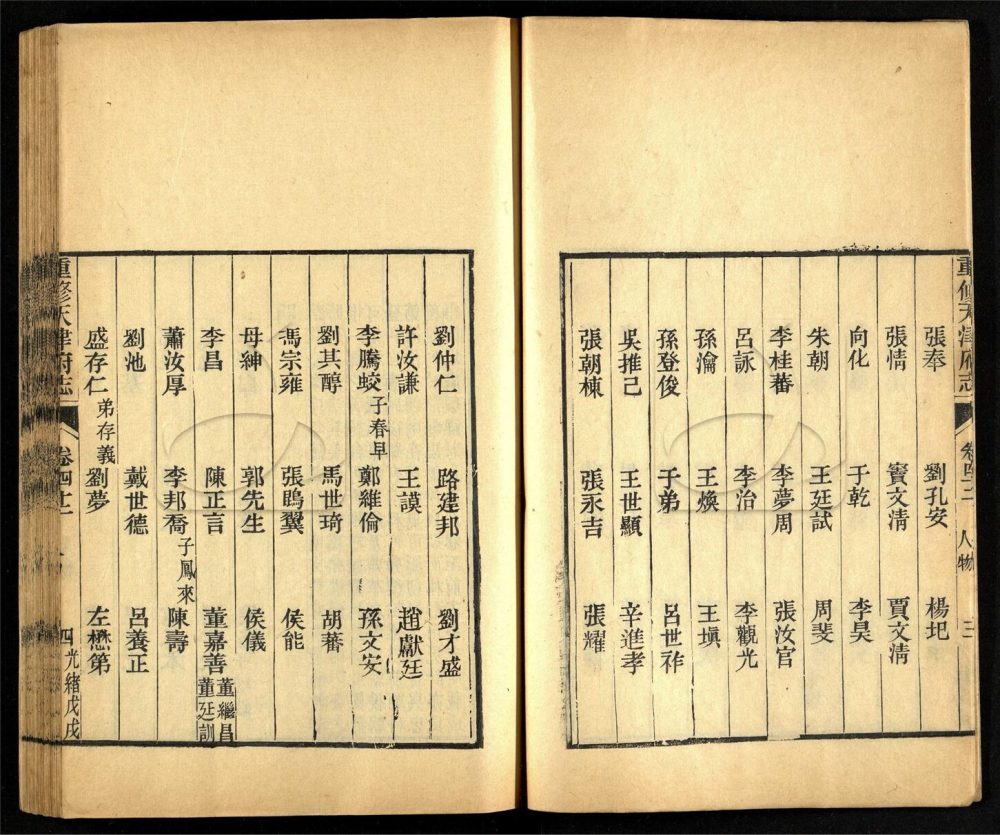 重修天津府志 卷四十二 人物 三
張奉 劉孔安 楊圯
張情 竇文清 賈文清
向化 于乾 李昊
朱朝 王廷試 周斐
李桂蕃 李夢周 張汝官
呂詠 李治 李觀光
孫瀹 王煥 王塡
孫登俊 于弟 呂世祚
吳推己 王世顯 辛進孝
張朝棟 張永吉 張耀
劉仲仁 路建邦 劉才盛
許汝謙 王謨 趙獻廷
李騰蛟 子春早 鄭維倫 孫文安
劉其醇 馬世琦 胡蕃
馮宗雍 張鵾翼 侯能
母紳 郭先生 侯儀
李昌 陳正言 董嘉善 董繼昌 董廷訓
蕭汝厚 李邦喬 子鳳來 陳壽
劉池 戴世德 呂養正
盛存仁 弟存義 劉夢 左懋第
重修天津府志 卷四十二 人 四 光緒戊戌